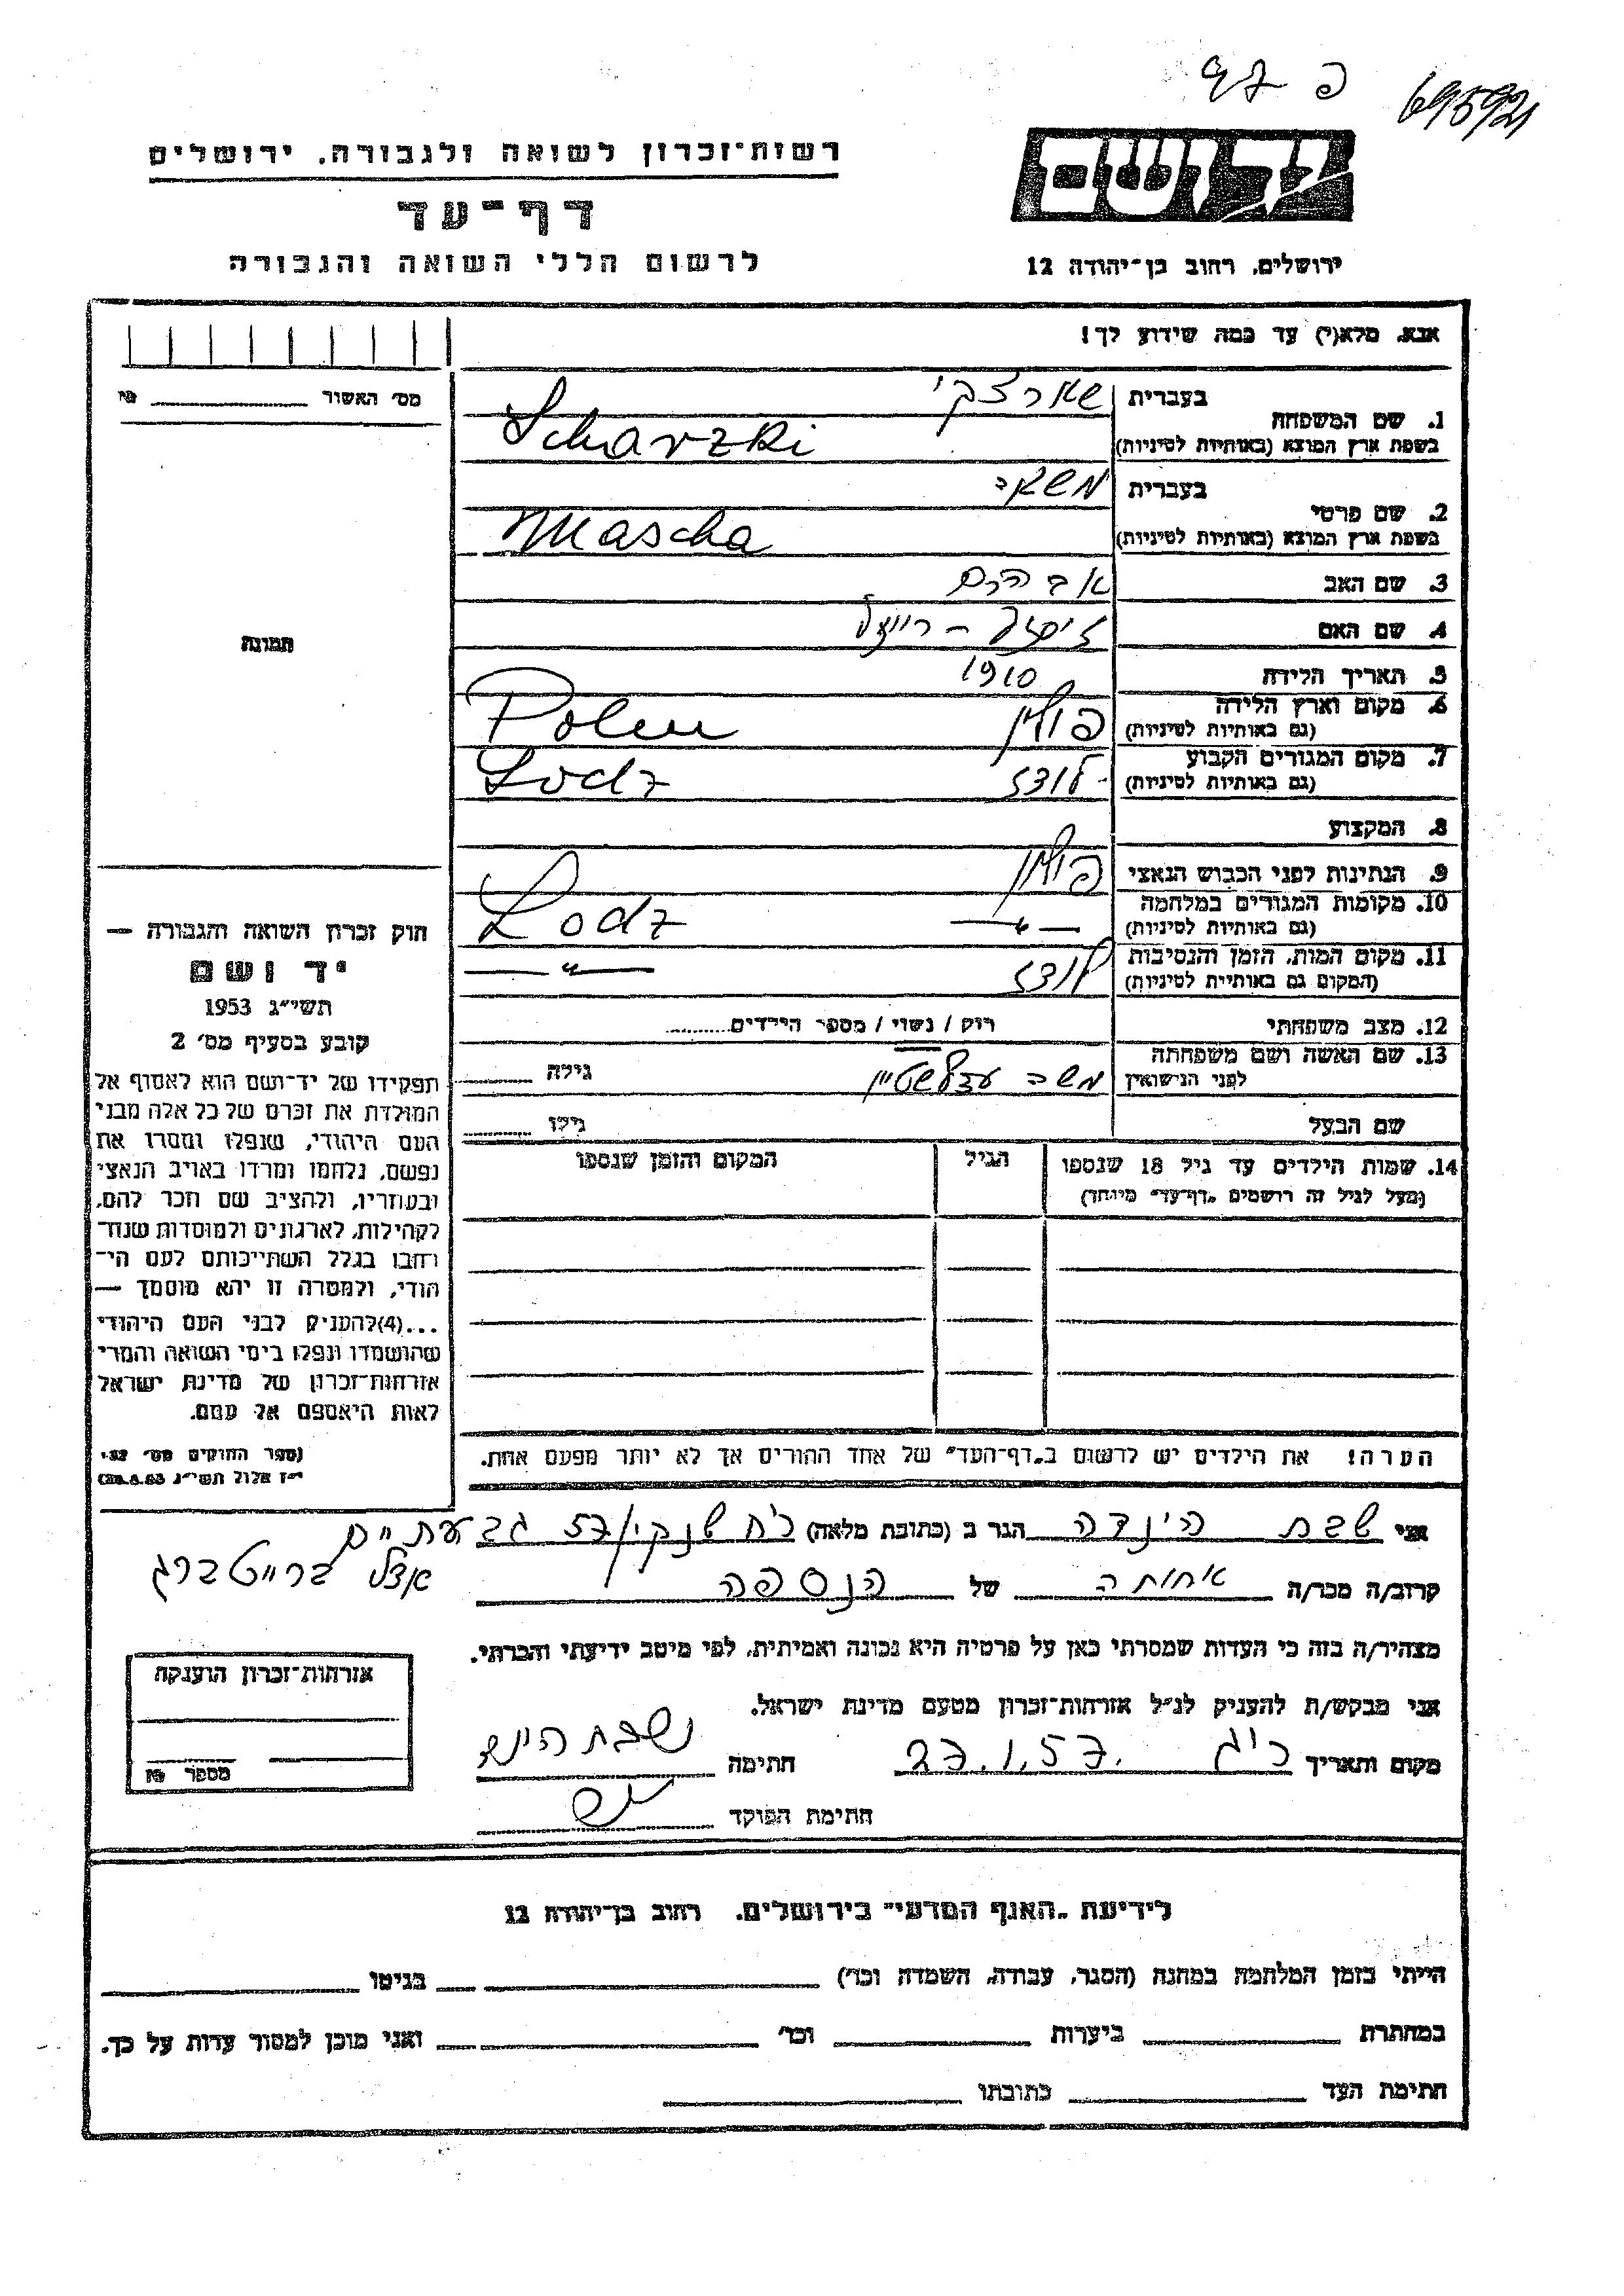 פ 97
695921
יד ושם
רשות־זכרון לשואה ולגבורה. ירושלים
דף־עד
לרשום חללי השואה והגבורה
ירושלים. רחוב בן־יהודה 12
אנא. מלא(י) עד כמה שידוע לך!
מס׳ האשור
1. שם המשפחה
בעברית שארצקי
בשפת ארץ המוצא (באותיות לטיניות) Scharzki
2. שם פרטי
בעברית משה
בשפת ארץ המוצא (באותיות לטיניות) Mascha
3. שם האב אברהם
4. שם האם
5. תאריך הלידה 1910
6. מקום וארץ הלידה פולין Polen
(גם באותיות לטיניות)
7. מקום המגורים הקבוע לודז Lodz
(גם באותיות לטיניות)
8. המקצוע
9. הנתינות לפני הכבוש הנאצי פולין
10. מקומות המגורים במלחמה —״— Lodz
(גם באותיות לטיניות)
11. מקום המות, הזמן והנסיבות לודז —״—
(המקום גם באותיית לטיניות)
12. מצב משפחתי רוק / נשוי / מספר הילדים........
13. שם האשה ושם משפחתה
לפני הנישואין גילה
שם הבעל גילו
14. שמות הילדים עד גיל 18 שנספו
(מעל לגיל זה רושמים „דף־עד״ מיוחד)
הגיל
המקום והזמן שנספו
הערה! את הילדים יש לרשום ב„דף־העד״ של אחד ההורים אך לא יותר מפעם אחת.
תמונה
חוק זכרון השואה והגבורה —
יד ושם
תשי״ג 1953
קובע בסעיף מס׳ 2
תפקידו של יד־ושם הוא לאסוף אל
המולדת את זכרם של כל אלה מבני
העם היהודי, שנפלו ומסרו את
נפשם, נלחמו ומרדו באויב הנאצי
ובעוזריו, ולהציב שם וזכר להם,
לקהילות, לארגונים ולמוסדות שנח־
רחבו בגלל השתייכותם לעם הי־
הודי, ולמטרה זו יהא מוסמך —
...(4)להעניק לבני העם היהודי
שהושמדו ונפלו בימי השואה והמרי
אזרחות־זכרון של מדינת ישראל
לאות היאספם אל עמם.
(ספר החוקים מס׳ 132.
י״ז אלול תשי״ג 28.8.53)
אני שבת הינדה הגר ב (כתובת מלאה) רח שנקין/57 גבעתיים
אצל ברייטברג
קרוב/ה מכר/ה אחותה של הנספה
מצהיר/ה בזה כי העדות שמסרתי כאן על פרטיה היא נכונה ואמיתית, לפי מיטב ידיעתי והכרתי.
אני מבקש/ת להעניק לנ״ל אזרחות־זכרון מטעם מדינת ישראל.
מקום ותאריך 27.1.57 חתימה
חתימת הפוקד
אזרחות־זכרון הוענקה
מספר
לידיעת „האגף המדעי״ בירושלים. רחוב בן־יהודה 12
הייתי בזמן המלחמה במחנה (הסגר, עבודה, השמדה וכו׳) בגיטו
במחתרת ביערות וכו׳ ואני מוכן למסור עדות על כך.
חתימת העד כתובתו